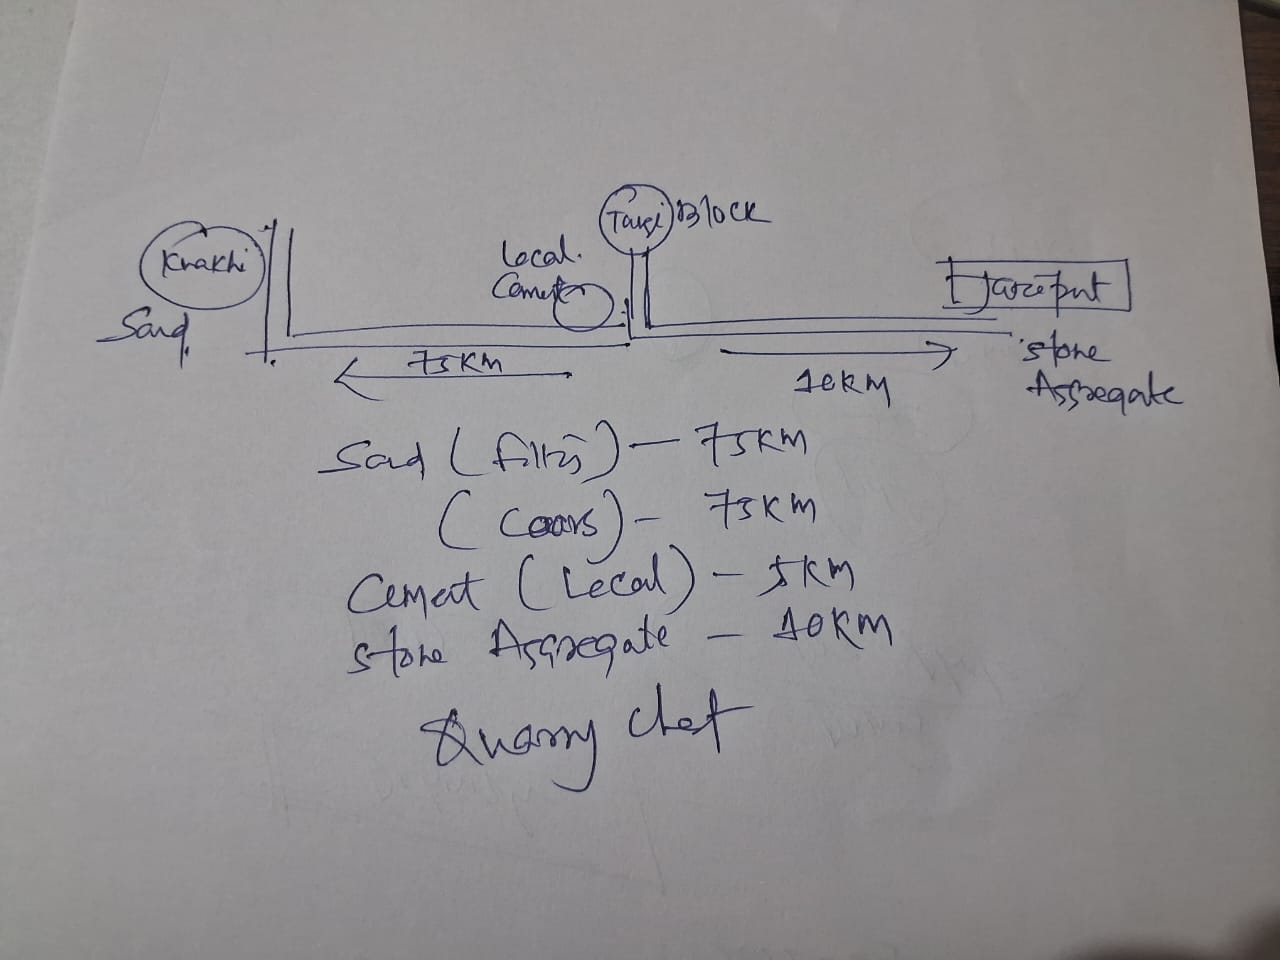 Block
Local.
Khakhi
Sand.
75KM
10KM
stone
Aggregate
Sand ( filling ) — 75KM
( Coars ) – 75KM
Cement ( Local ) – 5KM
stone Aggregate – 10KM
Quarry Chat